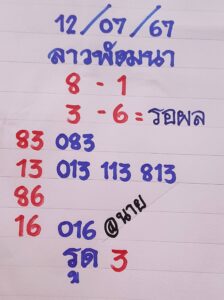 12/07/67
ลาวพัฒนา
8 - 1
3 - 6 = รอผล
83 083
13 013 113 813
86
16 016 @นาย
รูด 3